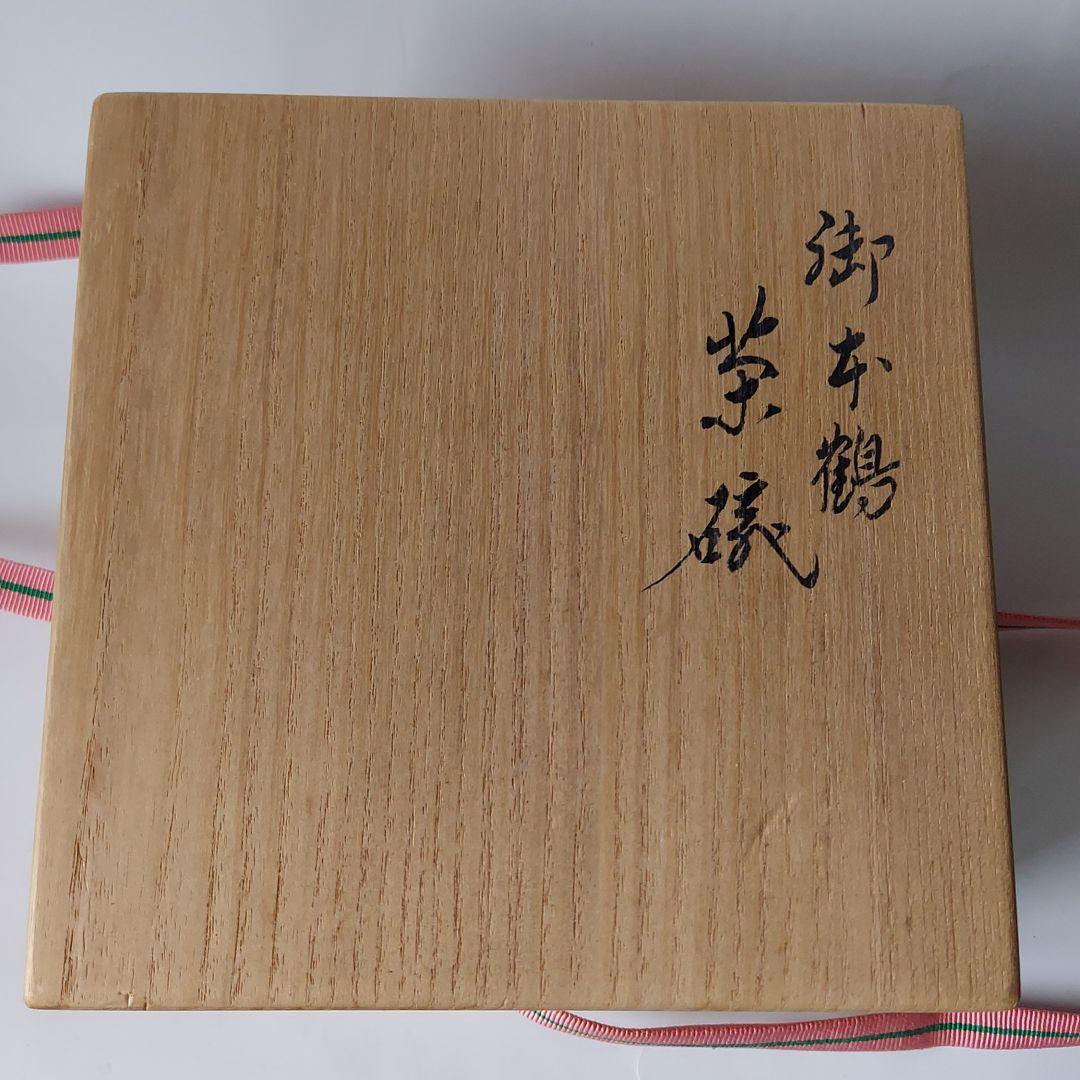 御本鶴
茶碗